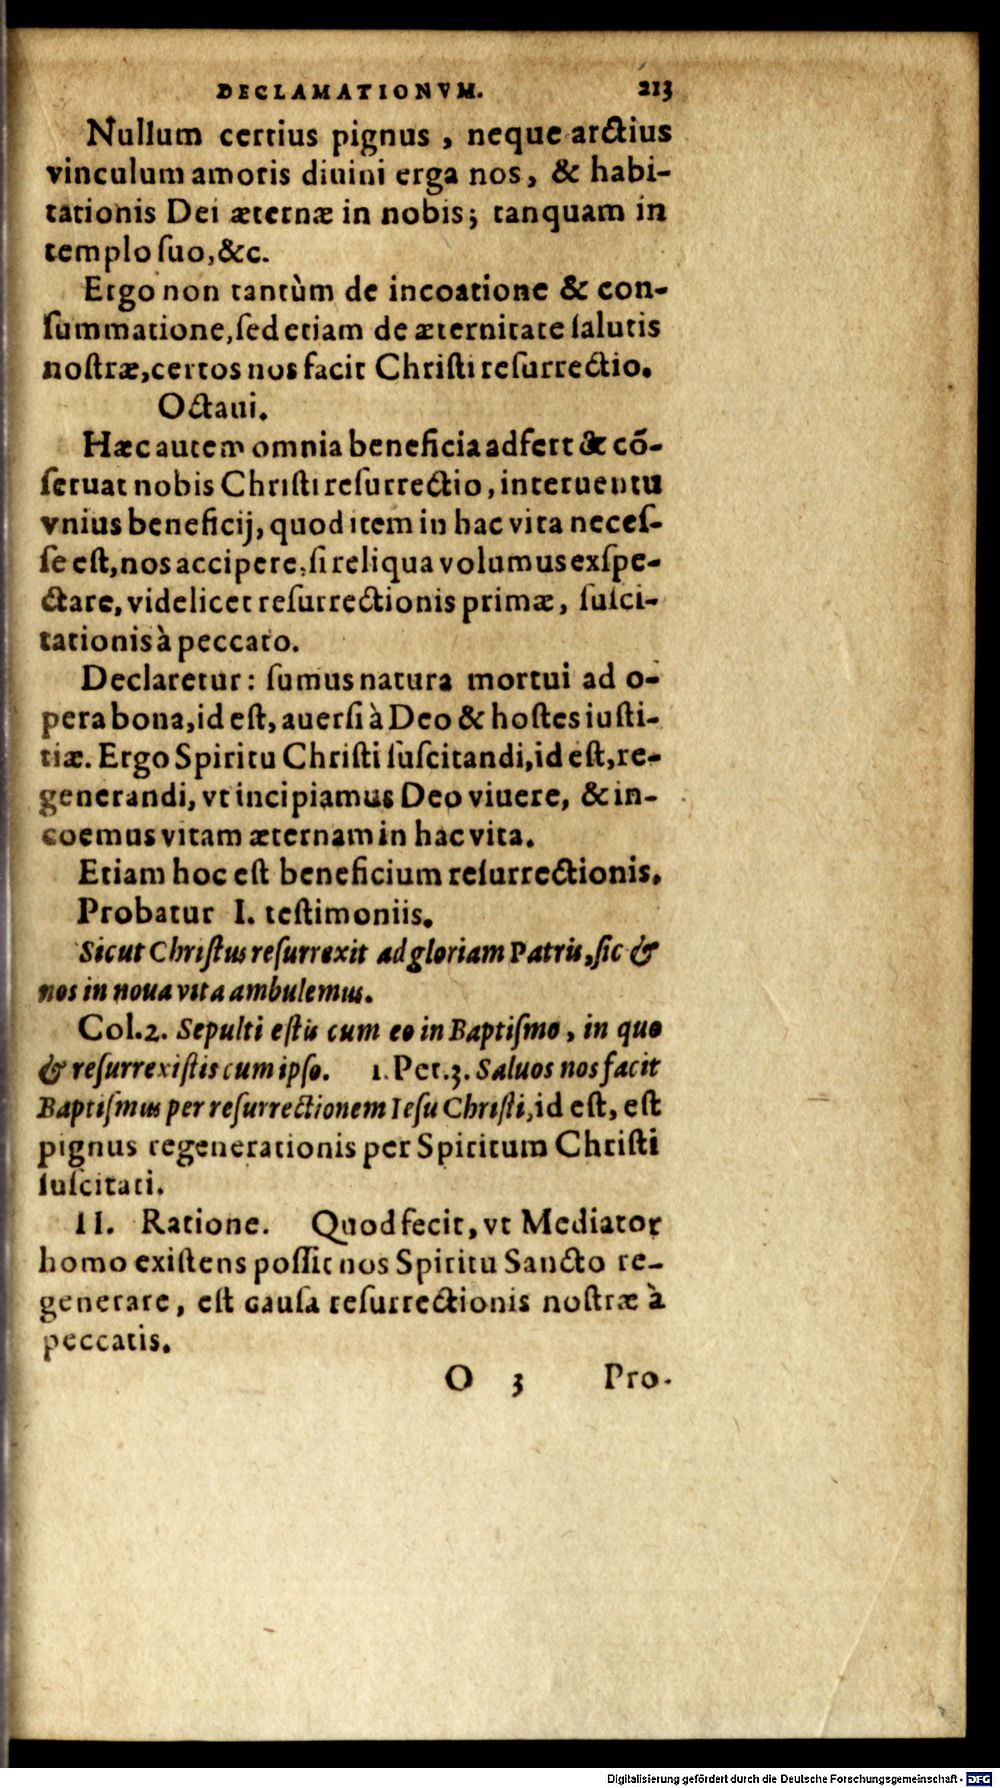 DECLAMATIONVM. 213
Nullum certius pignus, neque arctius
vinculum amoris diuini erga nos, & habi-
tationis Dei æternæ in nobis; tanquam in
templo ſuo, &c.
Ergo non tantùm de incoatione & con-
ſummatione, ſed etiam de æternitate ſalutis
noſtræ, certos nos facit Chriſti reſurrectio.
Octaui.
Hæc autem omnia beneficia adfert & cõ-
ſeruat nobis Chriſti reſurrectio, interuentu
vnius beneficij, quod item in hac vita neceſ-
ſe eſt, nos accipere, ſi reliqua volumus exſpe-
ctare, videlicet reſurrectionis primæ, ſuſci-
tationis à peccato.
Declaretur: ſumus natura mortui ad o-
pera bona, id eſt, auerſi à Deo & hoſtes iuſti-
tiæ. Ergo Spiritu Chriſti ſuſcitandi, id eſt, re-
generandi, vt incipiamus Deo viuere, & in-
coemus vitam æternam in hac vita.
Etiam hoc eſt beneficium reſurrectionis.
Probatur I. teſtimoniis.
Sicut Chriſtus reſurrexit ad gloriam Patris, ſic &
nos in noua vita ambulemus.
Col. 2. Sepulti eſtis cum eo in Baptiſmo, in quo
& reſurrexiſtis cum ipſo. 1. Pet. 3. Saluos nos facit
Baptiſmus per reſurrectionem Ieſu Chriſti, id eſt, eſt
pignus regenerationis per Spiritum Chriſti
ſuſcitati.
II. Ratione. Quod fecit, vt Mediator
homo exiſtens poſſit nos Spiritu Sancto re-
generare, eſt cauſa reſurrectionis noſtræ à
peccatis.
O 3 Pro-
Digitalisierung gefördert durch die Deutsche Forschungsgemeinschaft - DFG